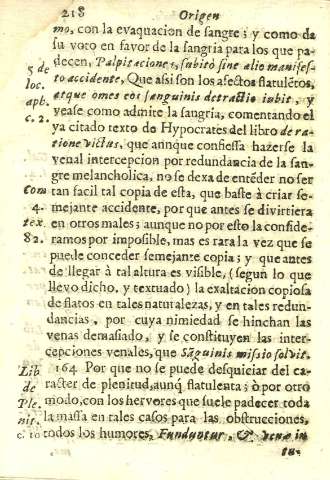 218 Origen
mo, con la evaquacion de sangre; y como da
su voto en favor de la sangria para los que pa-
decen, Palpitaciones, subitò sine alio manifes-
5 de
to accidente, Que assi son los afectos flatulẽtos,
loc.
atque omes eos sanguinis detractio iubit, y
aph.
vease como admite la sangria, comentando el
c. 2.
ya citado texto de Hypocrates del libro de ra-
tione victus, que aunque confiessa hazerse la
venal intercepcion por redundancia de la san-
gre melancholica, no se dexa de entẽder no ser
Com
tan facil tal copia de esta, que baste à criar se-
4.
mejante accidente, por que antes se divirtiera
tex.
en otros males; aunque no por esto la conside-
82.
ramos por imposible, mas es rara la vez que se
puede conceder semejante copia; y que antes
de llegar à tal altura es visible, (segun lo que
llevo dicho, y textuado) la exaltacion copiosa
de flatos en tales naturalezas, y en tales redun-
dancias, por cuya nimiedad se hinchan las
venas demasiado, y se constituyen las inter-
cepciones venales, que Sãguinis missio solvit.
Lib
164 Por que no se puede desquiciar del ca-
de
racter de plenitud, aunq̃ flatulenta; ò por otro
Ple.
modo, con los hervores que suele padecer toda
nit.
la massa en tales casos para las obstrucciones,
c. 10
todos los humores, Funduntur, & venæ in